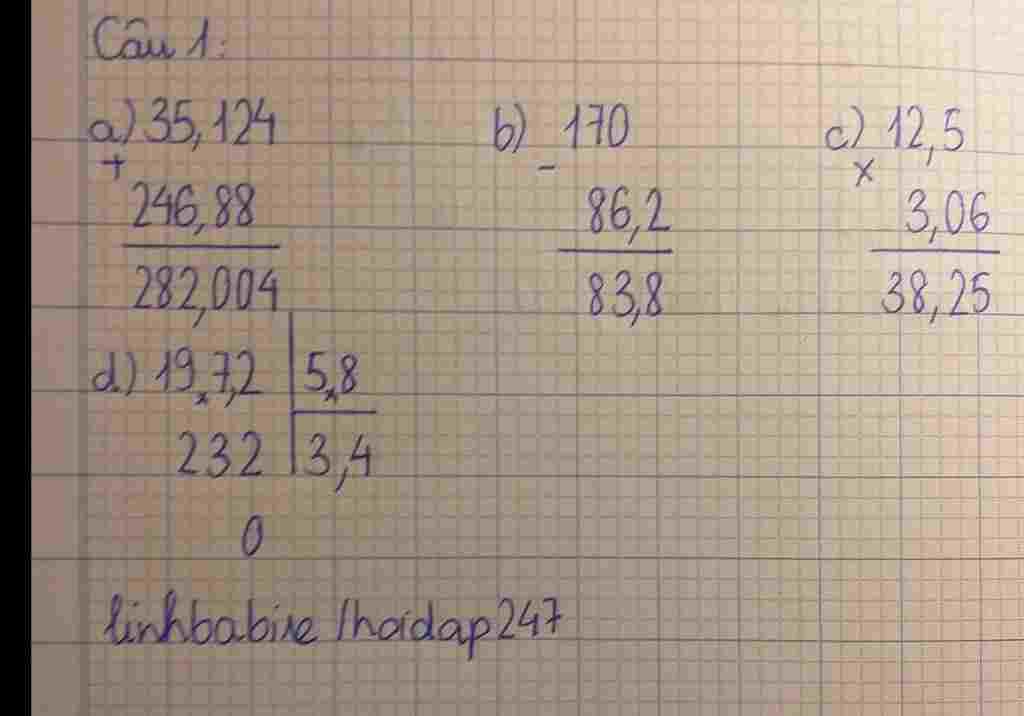 Câu 1:
a) 35,124 b) 170 c) 12,5
+ - x
246,88 86,2 3,06
282,004 83,8 38,25
d) 19,7,2 5,8
232 3,4
0
linhbabixe/hoidap247